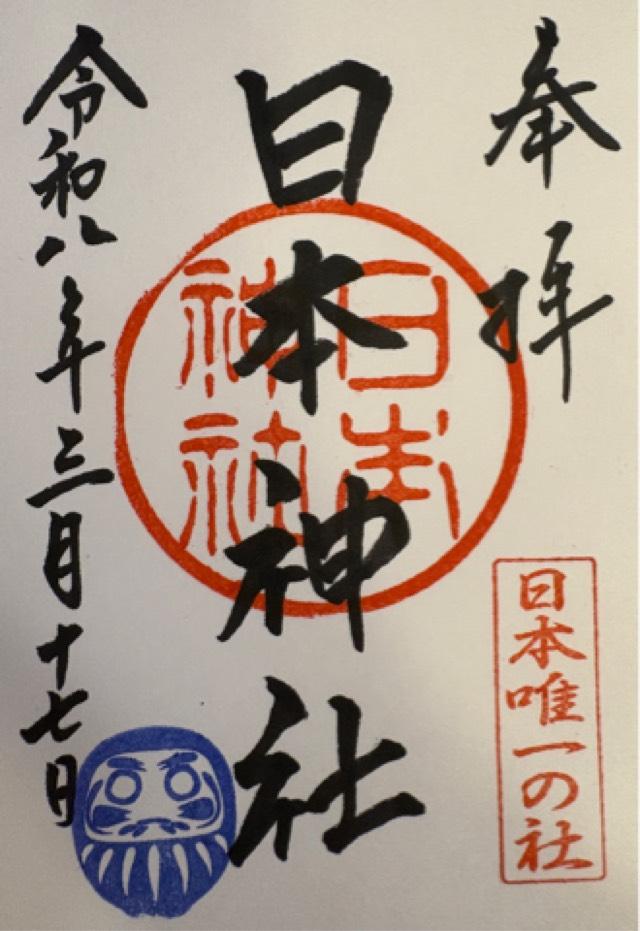 奉拝
日本神社
日本神社
日本唯一の社
令和八年三月十七日